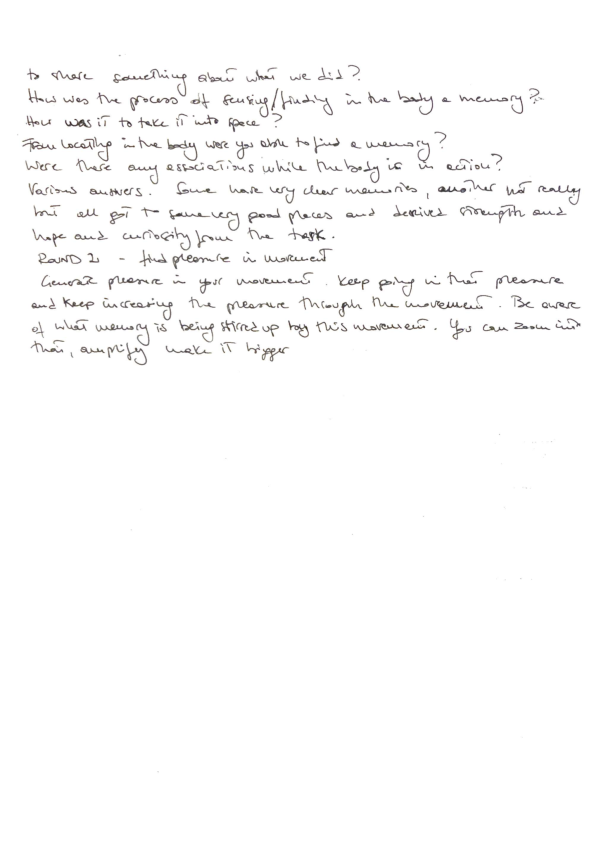 to share something about what we did?
How was the process of sensing/finding in the body a memory?
How was it to take it into space?
From locating in the body were you able to find a memory?
Were there any associations while the body is in action?
Various answers. Some have very clear memories, another not really
but all got to some very good places and derived strength and
hope and curiosity from the task.
ROUND 2 - find pleasure in movement
Generate pleasure in your movement. Keep going in that pleasure
and keep increasing the pleasure through the movement. Be aware
of what memory is being stirred up by this movement. You can zoom into
that, amplify make it bigger